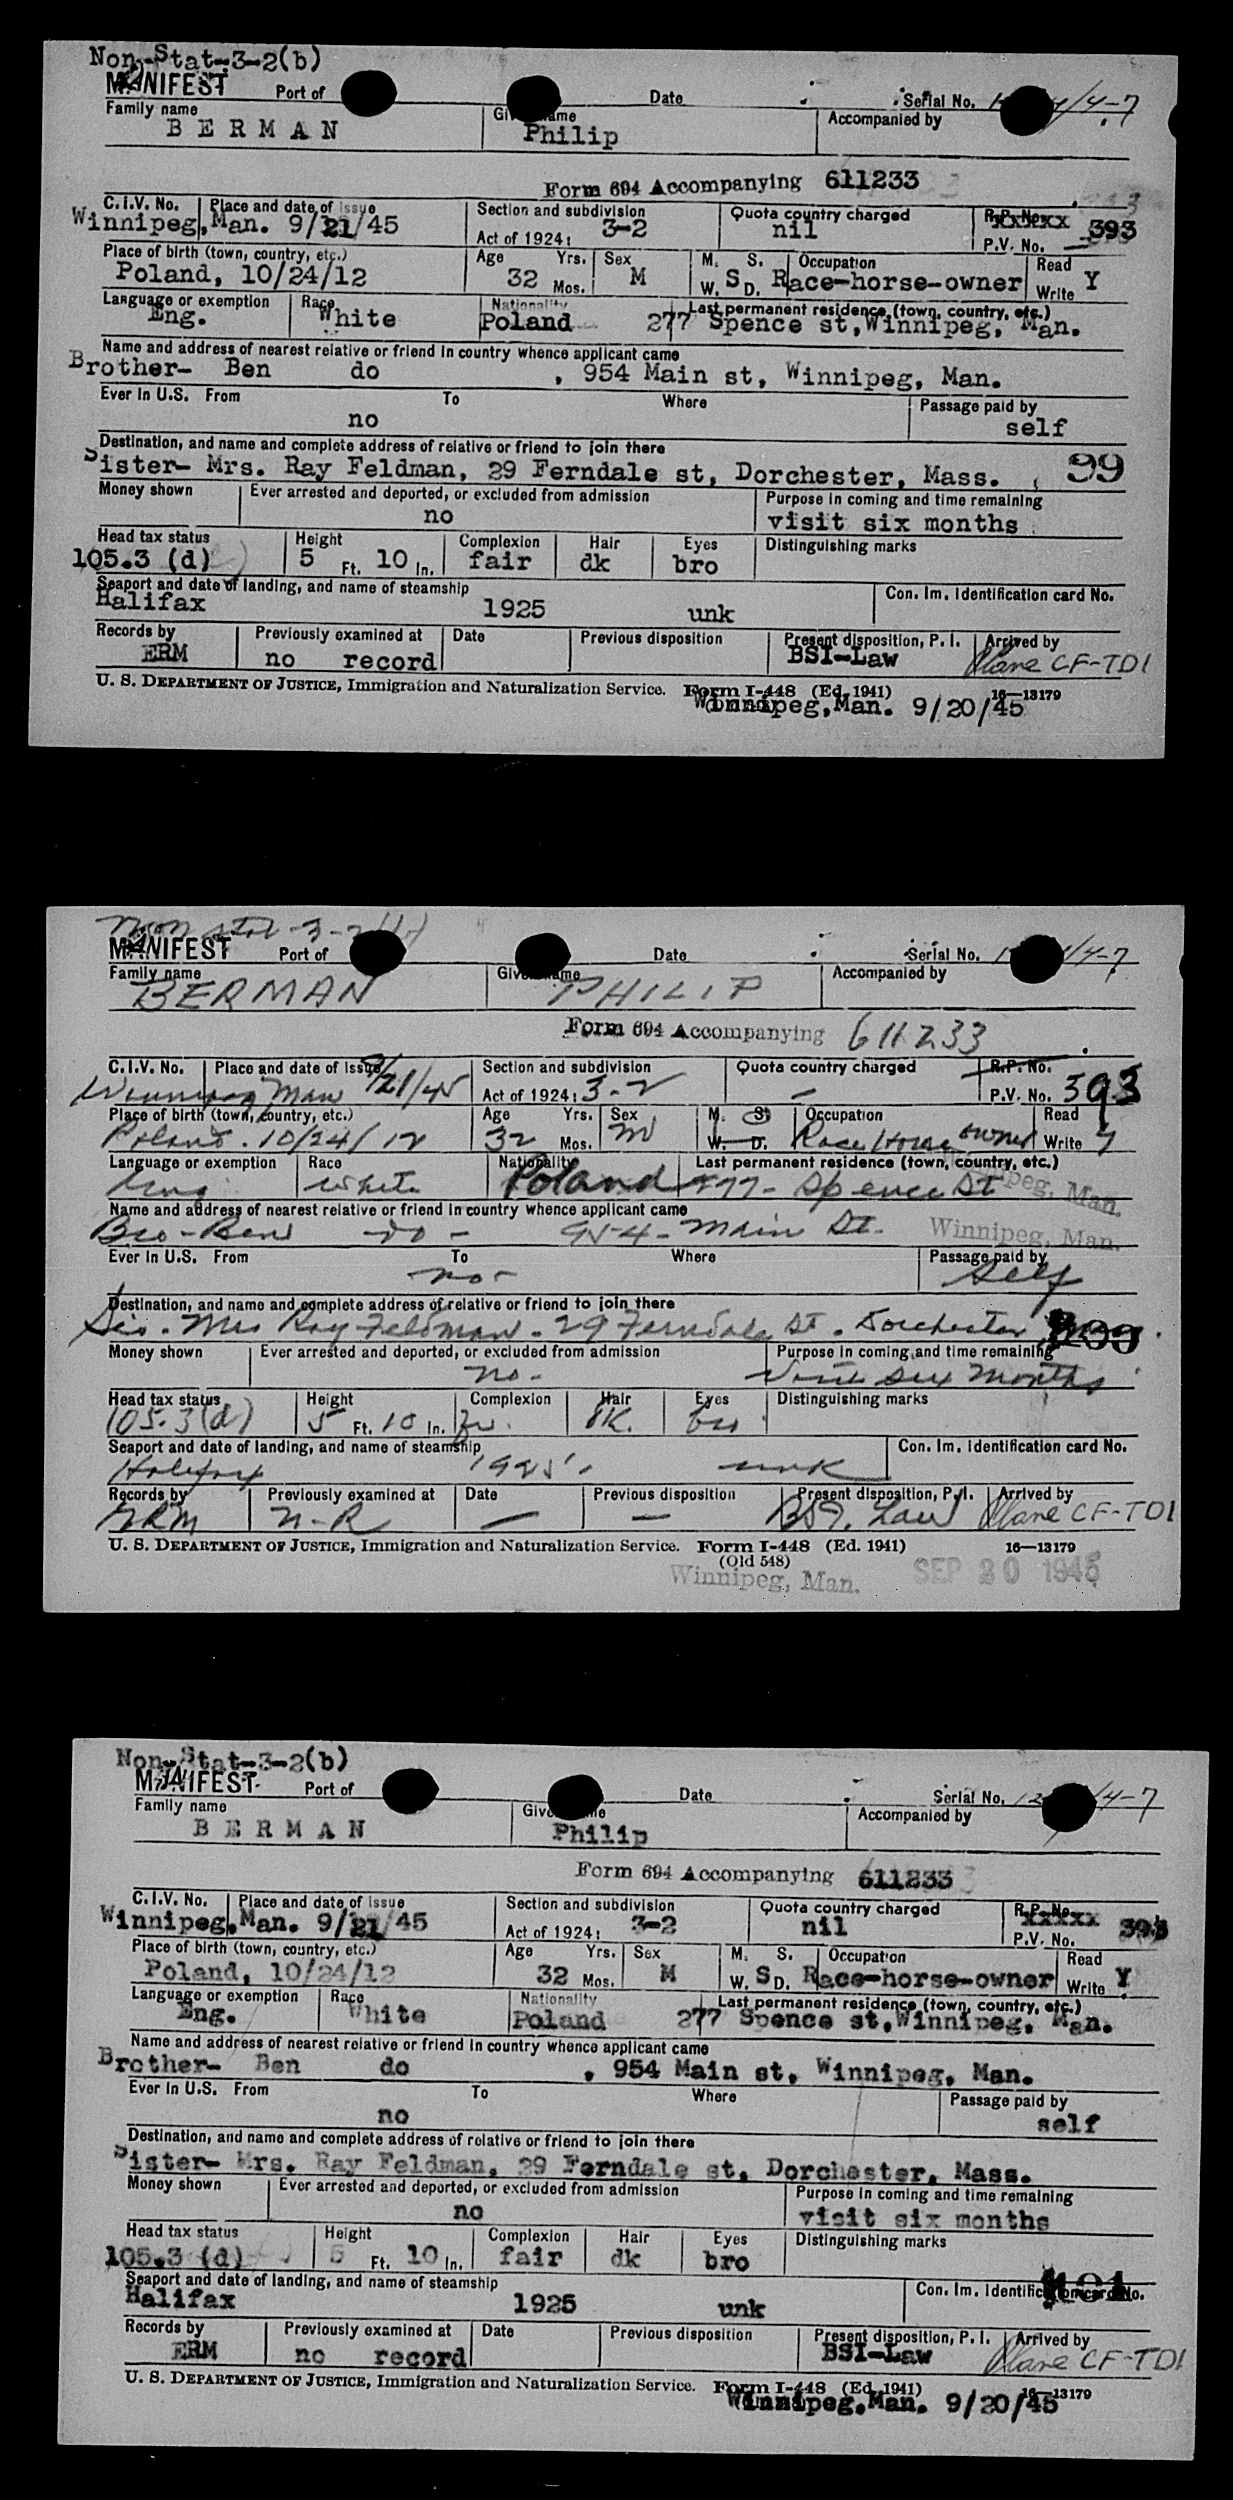 Non-Stat-3-2(b)
MANIFEST Port of Date Serial No. /4-7
Family name Given name Accompanied by
BERMAN Philip
Form 694 Accompanying 611233
C.I.V. No. Place and date of issue Section and subdivision Quota country charged R.P. No. xxxxx
Winnipeg, Man. 9/21/45 Act of 1924: 3-2 nil P.V. No. 393
Place of birth (town, country, etc.) Age Yrs. Sex M. S. Occupation Read
Poland, 10/24/12 32 Mos. M W. S D. Race-horse-owner Write Y
Language or exemption Race Nationality Last permanent residence (town, country, etc.)
Eng. White Poland 277 Spence st, Winnipeg, Man.
Name and address of nearest relative or friend in country whence applicant came
Brother- Ben do , 954 Main st, Winnipeg, Man.
Ever in U.S. From To Where Passage paid by
no self
Destination, and name and complete address of relative or friend to join there
Sister- Mrs. Ray Feldman, 29 Ferndale st, Dorchester, Mass. 99
Money shown Ever arrested and deported, or excluded from admission Purpose in coming and time remaining
no visit six months
Head tax status Height Complexion Hair Eyes Distinguishing marks
105.3 (d) 5 Ft. 10 In. fair dk bro
Seaport and date of landing, and name of steamship Con. Im. Identification card No.
Halifax 1925 unk
Records by Previously examined at Date Previous disposition Present disposition, P. I. Arrived by
ERM no record BSI-Law Plane CF-TDI
U. S. DEPARTMENT OF JUSTICE, Immigration and Naturalization Service. Form I-448 (Ed. 1941) 16—13179
Winnipeg, Man. 9/20/45
Non stat-3-2(b)
MANIFEST Port of Date Serial No. /4-7
Family name Given name Accompanied by
BERMAN PHILIP
Form 694 Accompanying 611233
C.I.V. No. Place and date of issue Section and subdivision Quota country charged R.P. No.
Winnipeg Man 9/21/45 Act of 1924: 3-2 - P.V. No. 393
Place of birth (town, country, etc.) Age Yrs. Sex M. S. Occupation Read
Poland. 10/24/12 32 Mos. M W. D. Race Horse owner Write Y
Language or exemption Race Nationality Last permanent residence (town, country, etc.)
Eng White Poland 277- Spence St Winnipeg, Man.
Name and address of nearest relative or friend in country whence applicant came
Bro - Ben - do - 954- Main St. Winnipeg, Man.
Ever in U.S. From To Where Passage paid by
no- Self
Destination, and name and complete address of relative or friend to join there
Sis. Mrs Ray Feldman. 29 Ferndale St. Dorchester
Money shown Ever arrested and deported, or excluded from admission Purpose in coming and time remaining
no- Visit six months
Head tax status Height Complexion Hair Eyes Distinguishing marks
105.3(d) 5 Ft. 10 In. fr. dK. bro
Seaport and date of landing, and name of steamship Con. Im. Identification card No.
Halifax 1925 unk
Records by Previously examined at Date Previous disposition Present disposition, P. I. Arrived by
ERM N-R — — BSI. Law Plane CF-TDI
U. S. DEPARTMENT OF JUSTICE, Immigration and Naturalization Service. Form I-448 (Ed. 1941) 16—13179
(Old 548)
Winnipeg, Man. SEP 20 1945
Non-Stat-3-2(b)
MANIFEST Port of Date Serial No. /4-7
Family name Given name Accompanied by
BERMAN Philip
Form 694 Accompanying 611233
C.I.V. No. Place and date of issue Section and subdivision Quota country charged R.P. No. xxxxx
Winnipeg, Man. 9/21/45 Act of 1924: 3-2 nil P.V. No. 393
Place of birth (town, country, etc.) Age Yrs. Sex M. S. Occupation Read
Poland, 10/24/12 32 Mos. M W. S D. Race-horse-owner Write Y
Language or exemption Race Nationality Last permanent residence (town, country, etc.)
Eng. White Poland 277 Spence st, Winnipeg, Man.
Name and address of nearest relative or friend in country whence applicant came
Brother- Ben do , 954 Main st, Winnipeg, Man.
Ever in U.S. From To Where Passage paid by
no self
Destination, and name and complete address of relative or friend to join there
Sister- Mrs. Ray Feldman, 29 Ferndale st, Dorchester, Mass.
Money shown Ever arrested and deported, or excluded from admission Purpose in coming and time remaining
no visit six months
Head tax status Height Complexion Hair Eyes Distinguishing marks
105.3 (d) 5 Ft. 10 In. fair dk bro
Seaport and date of landing, and name of steamship Con. Im. Identification card No.
Halifax 1925 unk 101
Records by Previously examined at Date Previous disposition Present disposition, P. I. Arrived by
ERM no record BSI-Law Plane CF-TDI
U. S. DEPARTMENT OF JUSTICE, Immigration and Naturalization Service. Form I-448 (Ed. 1941) 16—13179
Winnipeg, Man. 9/20/45